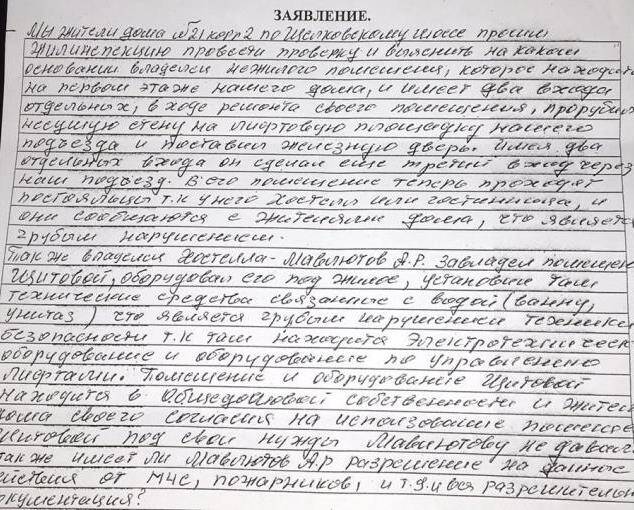 ЗАЯВЛЕНИЕ.
Мы жители дома №21 корп 2 по Щелковскому шоссе просим
жилинспекцию провести проверку и выяснить на каком
основании владелец нежилого помещения, которое находит
на первом этаже нашего дома, и имеет два входа
отдельных, в ходе ремонта своего помещения, прорубил
несущую стену на лифтовую площадку нашего
подъезда и поставил железную дверь. Имея два
отдельных входа он сделал еще третий вход через
наш подъезд. В его помещение теперь проходят
постояльцы т.к у него хостел или гостиница, и
они сообщаются с жителями дома, что являетс
грубым нарушением.
Также владелец хостелла - Мавлютов А.Р. завладел помещен
щитовой, оборудовал его под жилое, установил там
технические средства связанные с водой (ванну,
унитаз) что является грубым нарушением техники
безопасности т.к там находится электротехническ
оборудование и оборудование по управлению
лифтами. Помещение и оборудование щитовой
находится в общедомовой собственности и жител
дома своего согласия на использование помещен
щитовой под свои нужды Мавлютову не давал
также имеет ли Мавлютов А.Р разрешение на данные
ействия от МЧС, пожарников, и т.д. и вся разрешительн
окументация?